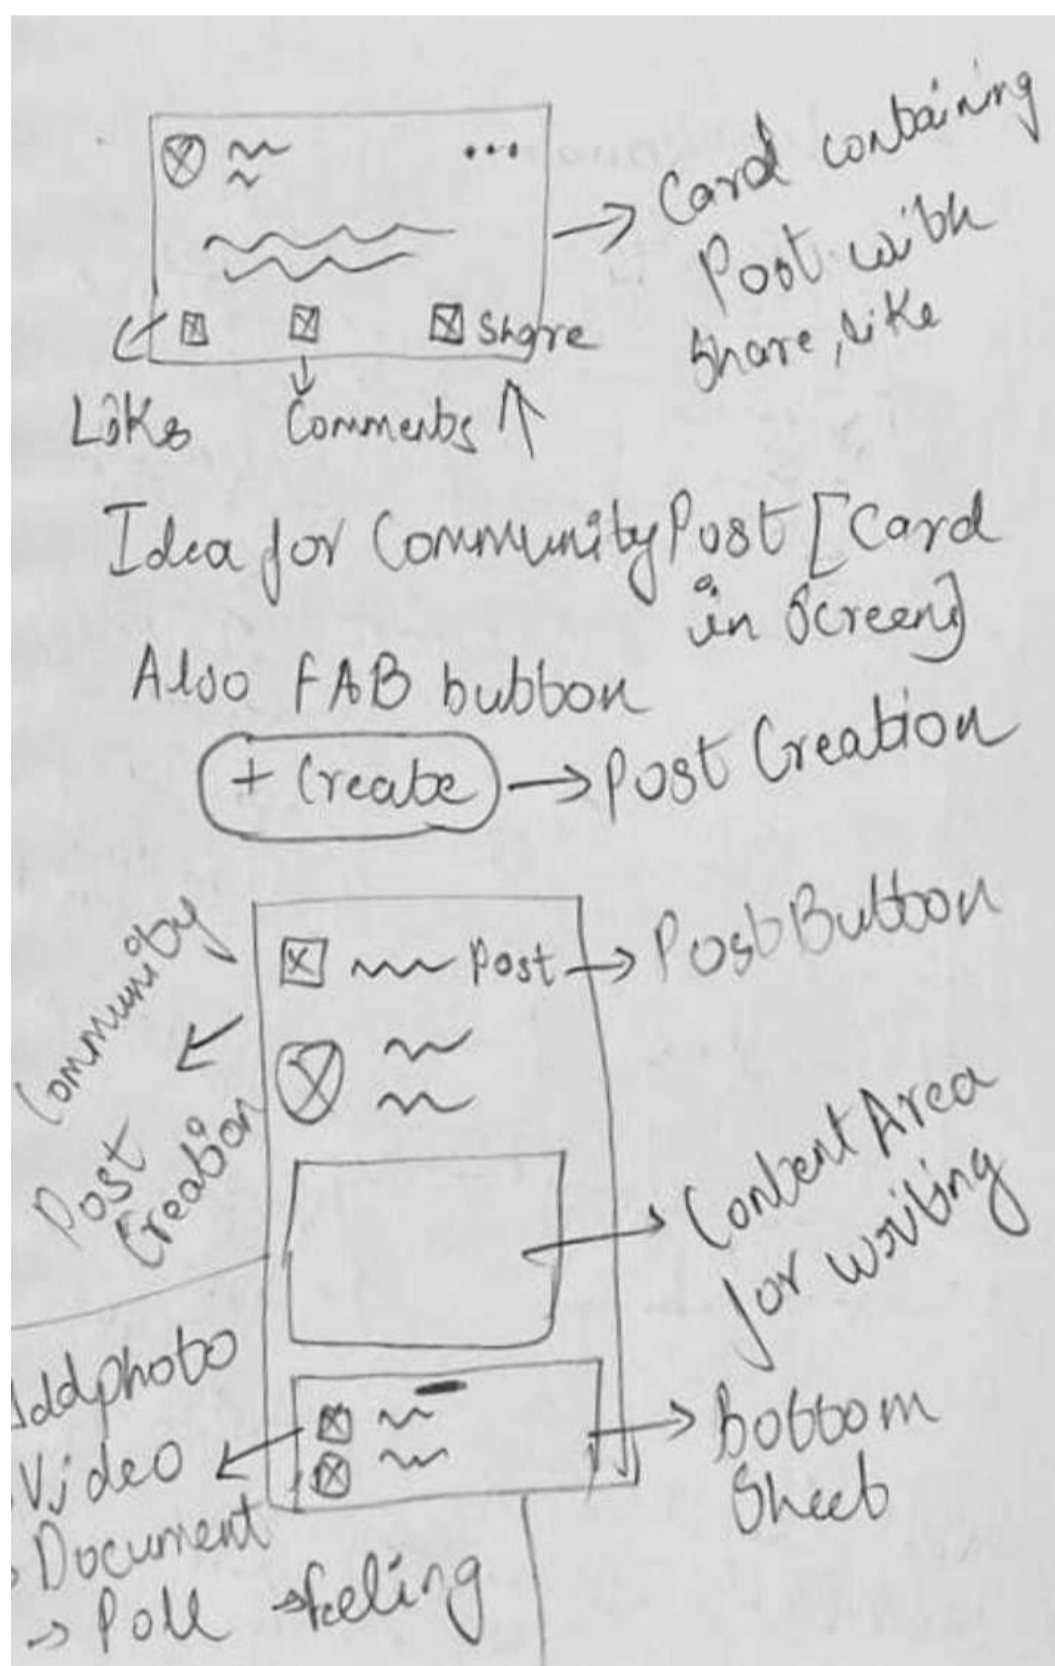 Card containing
Post with
Share, like
Share
Likes
Comments
Idea for Community Post [Card
in Screen]
Also FAB button
+ Create
Post Creation
Post
Post Button
Community
Post
Creation
Content Area
for writing
Addphoto
Video
Document
Poll
Feeling
Bottom
Sheet